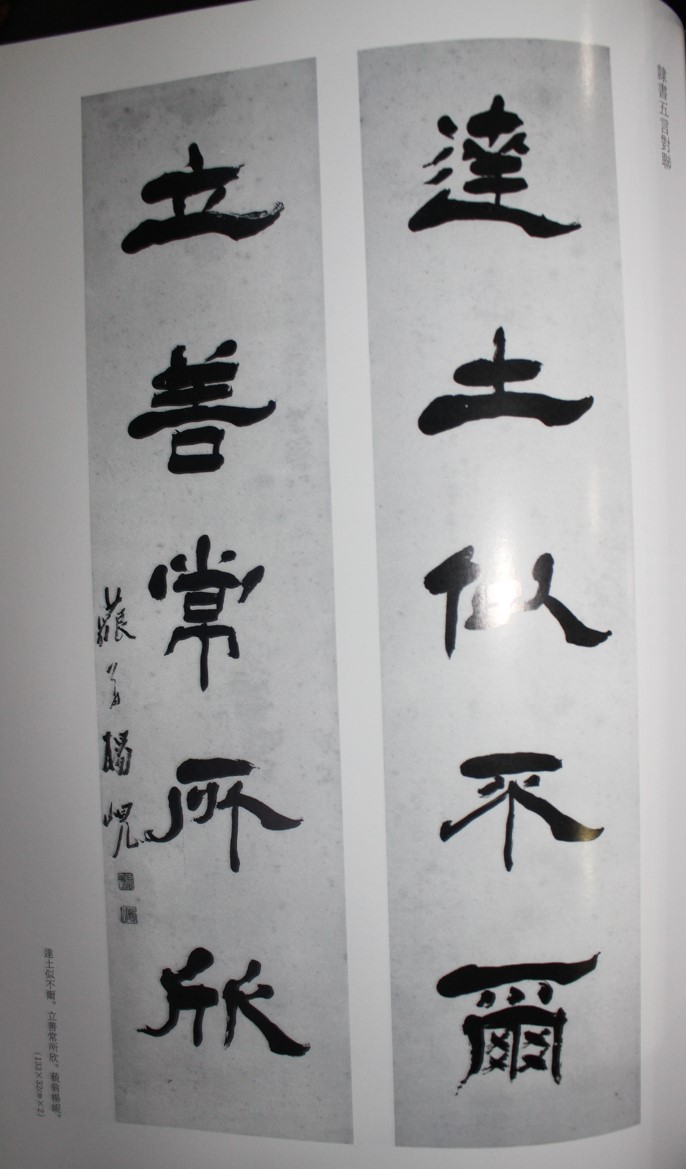 隸書五言對聯
達士似不爾
立善常所欣
藐翁楊峴
達士似不爾。立善常所欣。藐翁楊峴。
(132×32cm×2)